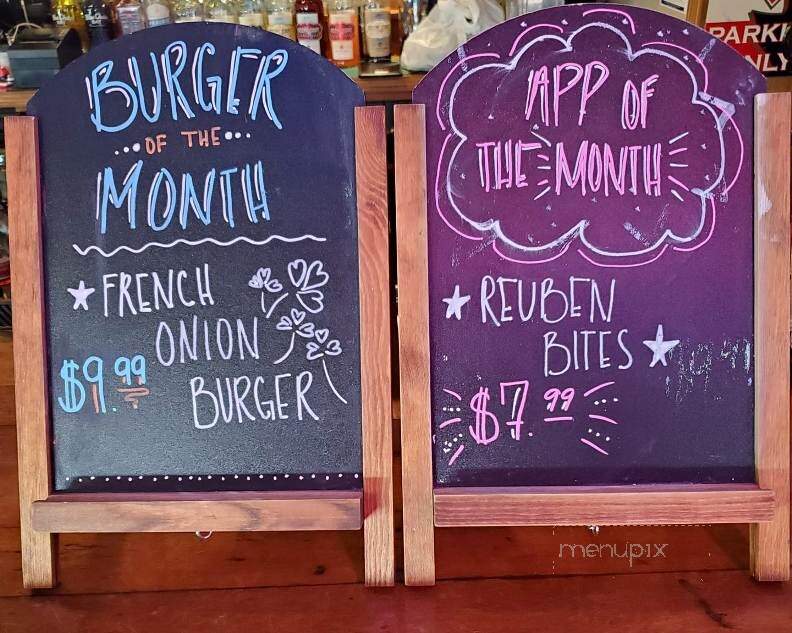 BURGER
OF THE
MONTH
FRENCH
ONION
BURGER
$9.99
APP OF
THE MONTH
REUBEN
BITES
$7.99
PARKI
NLY
menupix